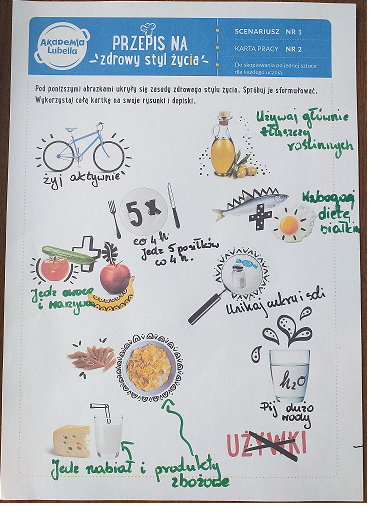 Akademia
Lubella
PRZEPIS NA
zdrowy styl życia
SCENARIUSZ NR 1
KARTA PRACY NR 2
Do skopiowania po jednej sztuce
dla każdego ucznia.
Pod poniższymi obrazkami ukryły się zasady zdrowego stylu życia. Spróbuj je sformułować.
Wykorzystaj całą kartkę na swoje rysunki i dopiski.
Używaj głównie
tłuszczy
roślinnych
żyj aktywnie
5x
co 4 h
jedz 5 posiłków
co 4 h.
Wzbogacaj
dietę
białkiem
Jedz owoce
i warzywa
Unikaj cukru i soli
h2o
Pij dużo
wody
UŻYWKI
Jedz nabiał i produkty
zbożowe